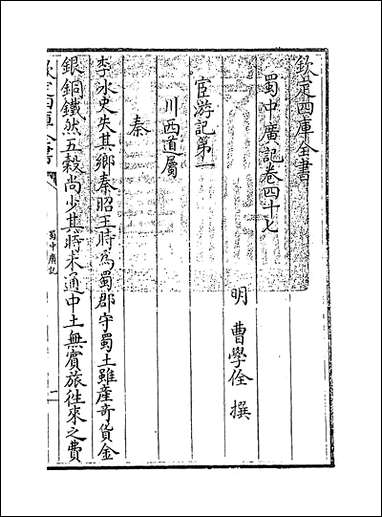 欽定四庫全書
蜀中廣記卷四十七
明 曹學佺 撰
宦游記第一
川西道屬
秦
李冰史失其鄉秦昭王時為蜀郡守蜀土雖產奇貨金
銀銅鐵然五穀尚少其時未通中土無賓旅往來之費
欽定四庫全書
蜀中廣記
一